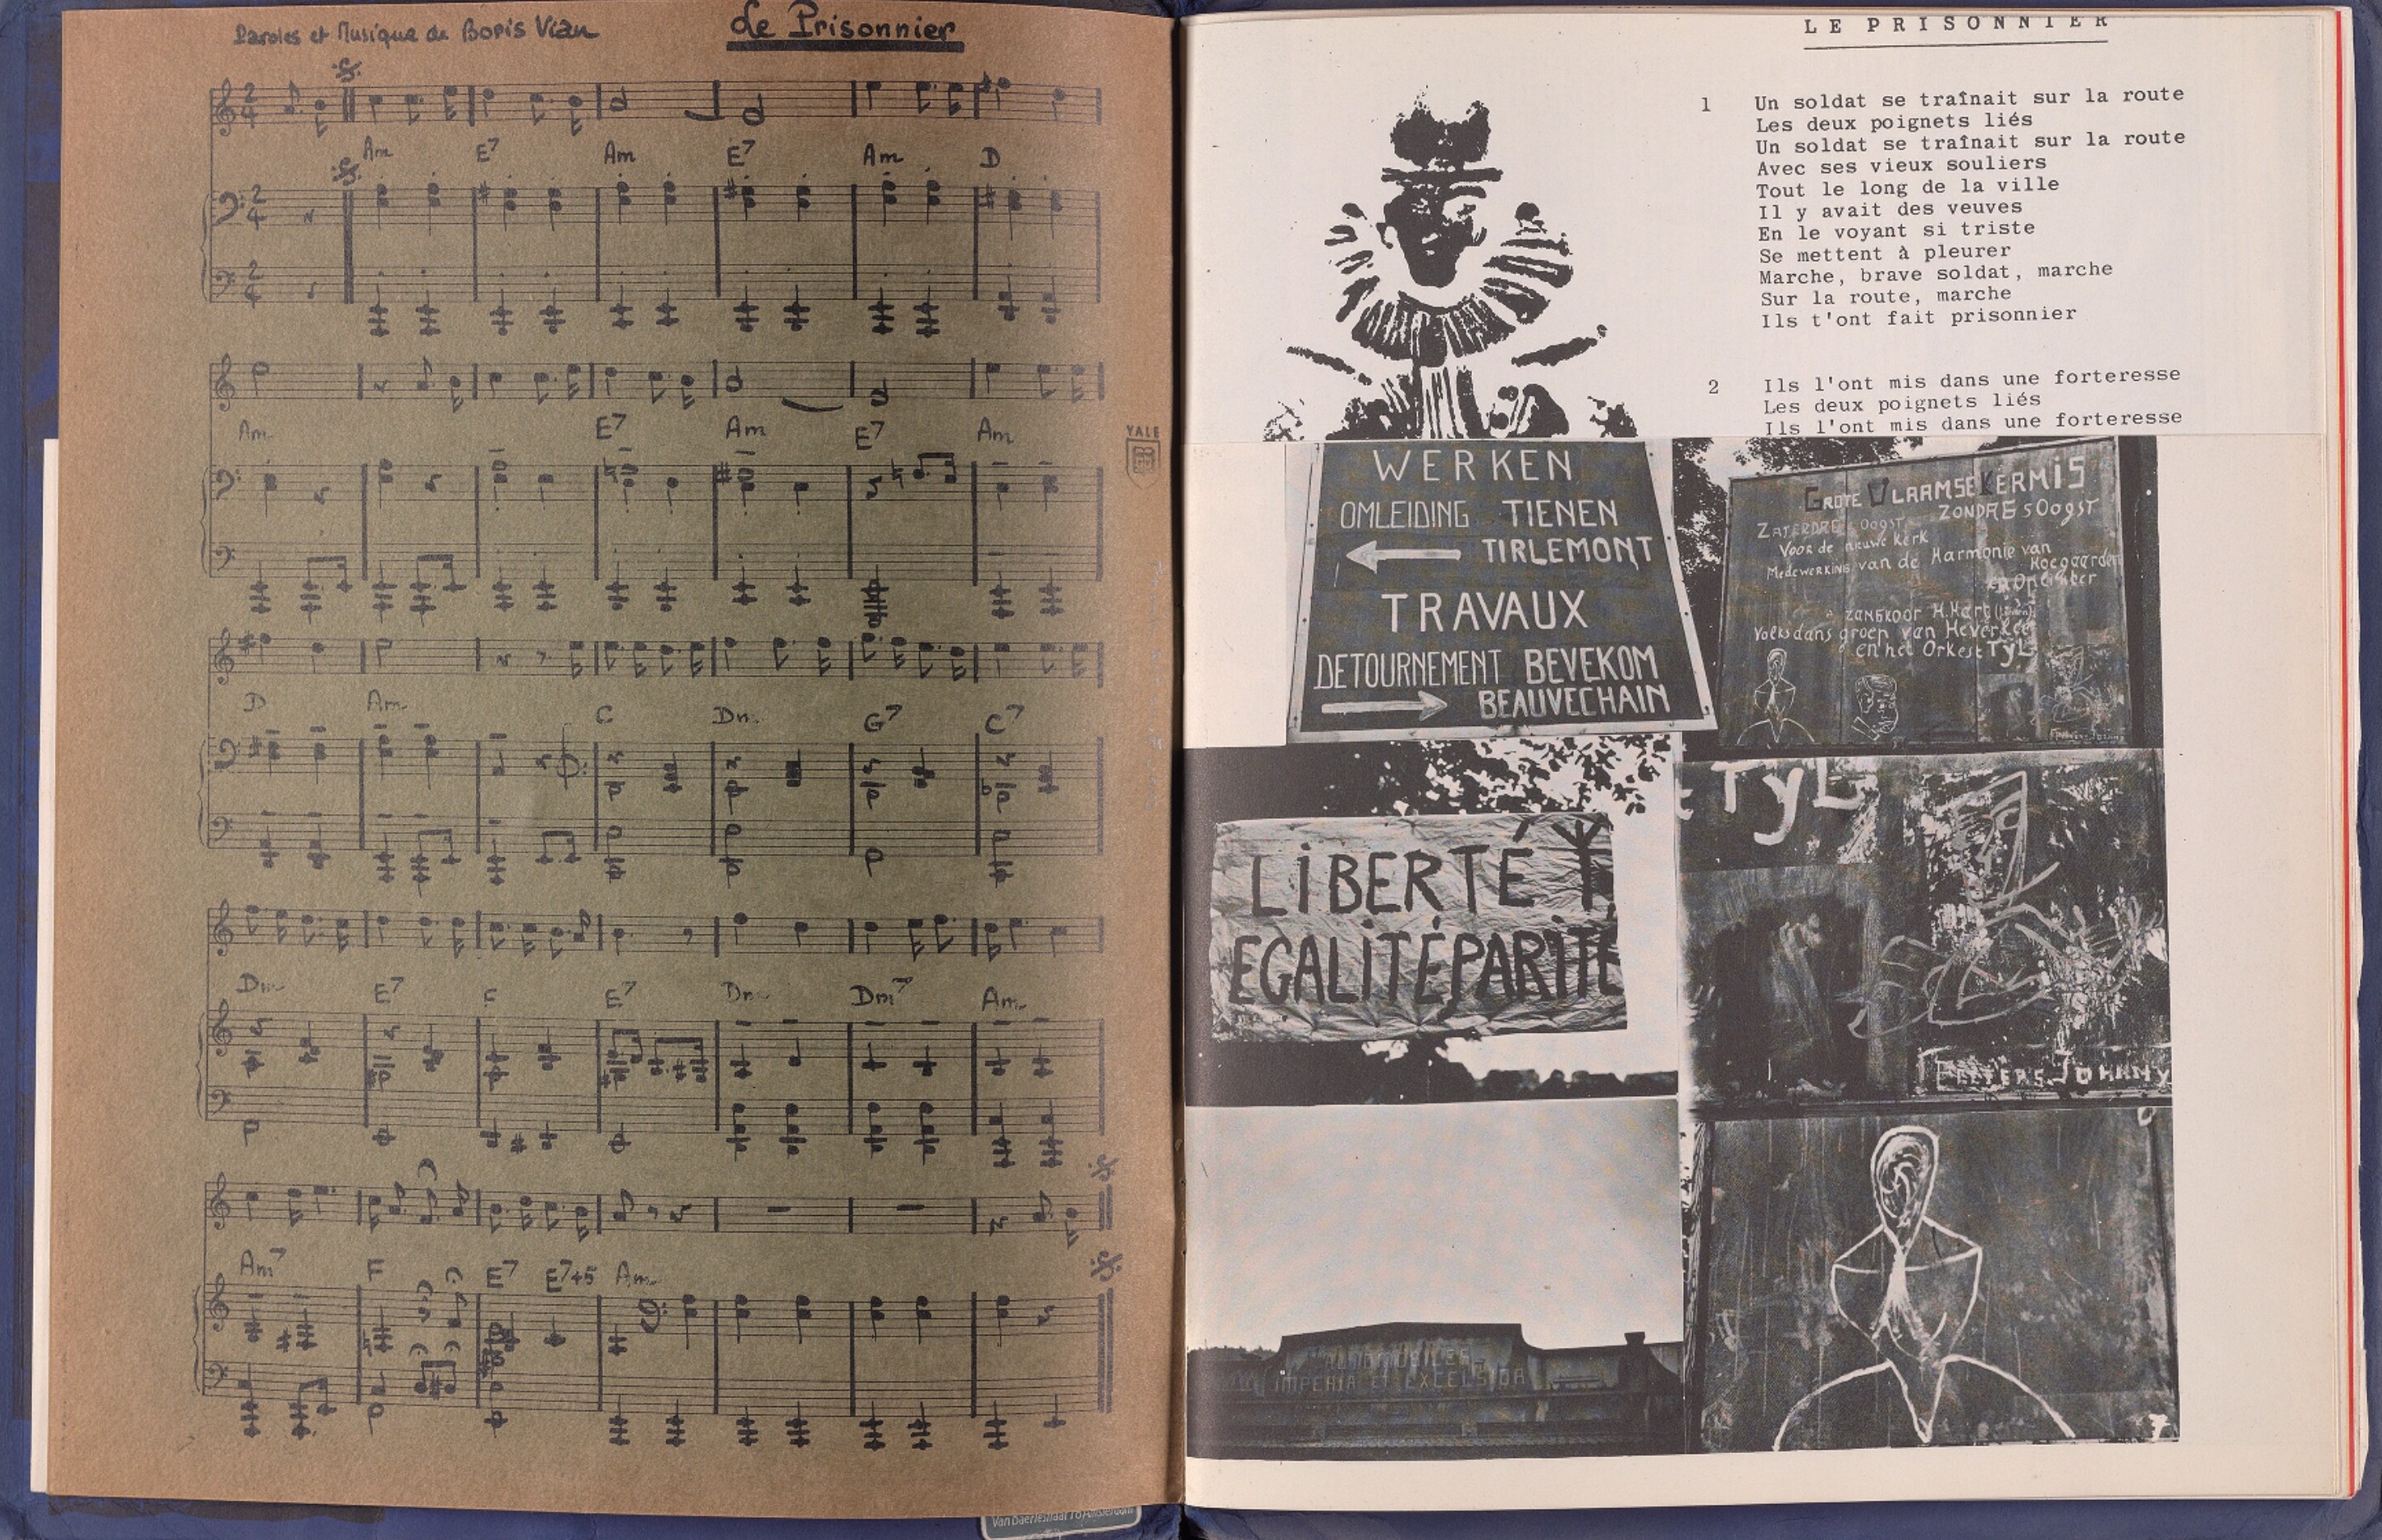 Paroles et Musique de Boris Vian
Le Prisonnier
Am E7 Am E7 Am D
Am E7 Am E7 Am
D Am C Dm G7 C7
Dm E7 F E7 Dm Dm7 Am
Am7 F E7 E7+5 Am
YALE
LE PRISONNIER
1 Un soldat se traînait sur la route
Les deux poignets liés
Un soldat se traînait sur la route
Avec ses vieux souliers
Tout le long de la ville
Il y avait des veuves
En le voyant si triste
Se mettent à pleurer
Marche, brave soldat, marche
Sur la route, marche
Ils t'ont fait prisonnier
2 Ils l'ont mis dans une forteresse
Les deux poignets liés
Ils l'ont mis dans une forteresse
WERKEN
OMLEIDING TIENEN
TIRLEMONT
TRAVAUX
DETOURNEMENT BEVEKOM
BEAUVECHAIN
GROTE VLAAMSE KERMIS
ZATERDAG Oogst ZONDAG 5 Oogst
Voor de nieuwe Kerk
MEDEWERKING van de Harmonie van
Hoegaarden
en Opl
ZANGKOOR H. Hart
Volksdans groep van Heverlee
en het Orkest TYL
LIBERTÉ
EGALITÉ PARITÉ
TYL
PEETERS JOHNNY
AUTOMOBILES
IMPERIA ET EXCELSIOR
Van Baerlestraat 76 Amsterdam